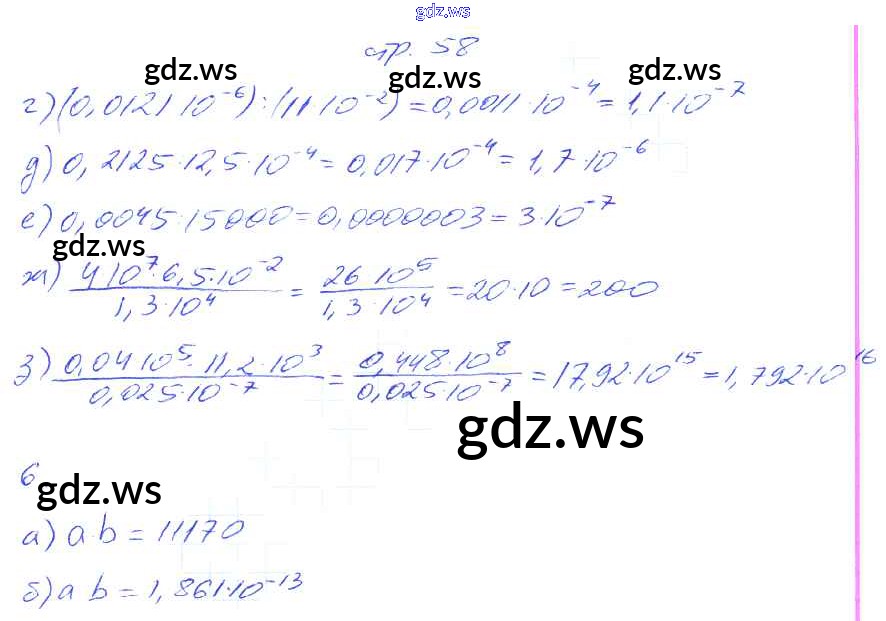 gdz.ws
стр. 58
gdz.ws gdz.ws gdz.ws
г) (0,0121·10⁻⁶):(11·10⁻²)=0,0011·10⁻⁴=1,1·10⁻⁷
д) 0,2125:12,5·10⁻⁴=0,017·10⁻⁴=1,7·10⁻⁶
е) 0,0045:15000=0,0000003=3·10⁻⁷
gdz.ws
ж) 4·10⁷·6,5·10⁻² / 1,3·10⁴ = 26·10⁵ / 1,3·10⁴ =20·10=200
з) 0,04·10⁵·11,2·10³ / 0,025·10⁻⁷ = 0,448·10⁸ / 0,025·10⁻⁷ =17,92·10¹⁵=1,792·10¹⁶
gdz.ws
6
gdz.ws
а) a·b=11170
б) a b=1,861·10⁻¹³